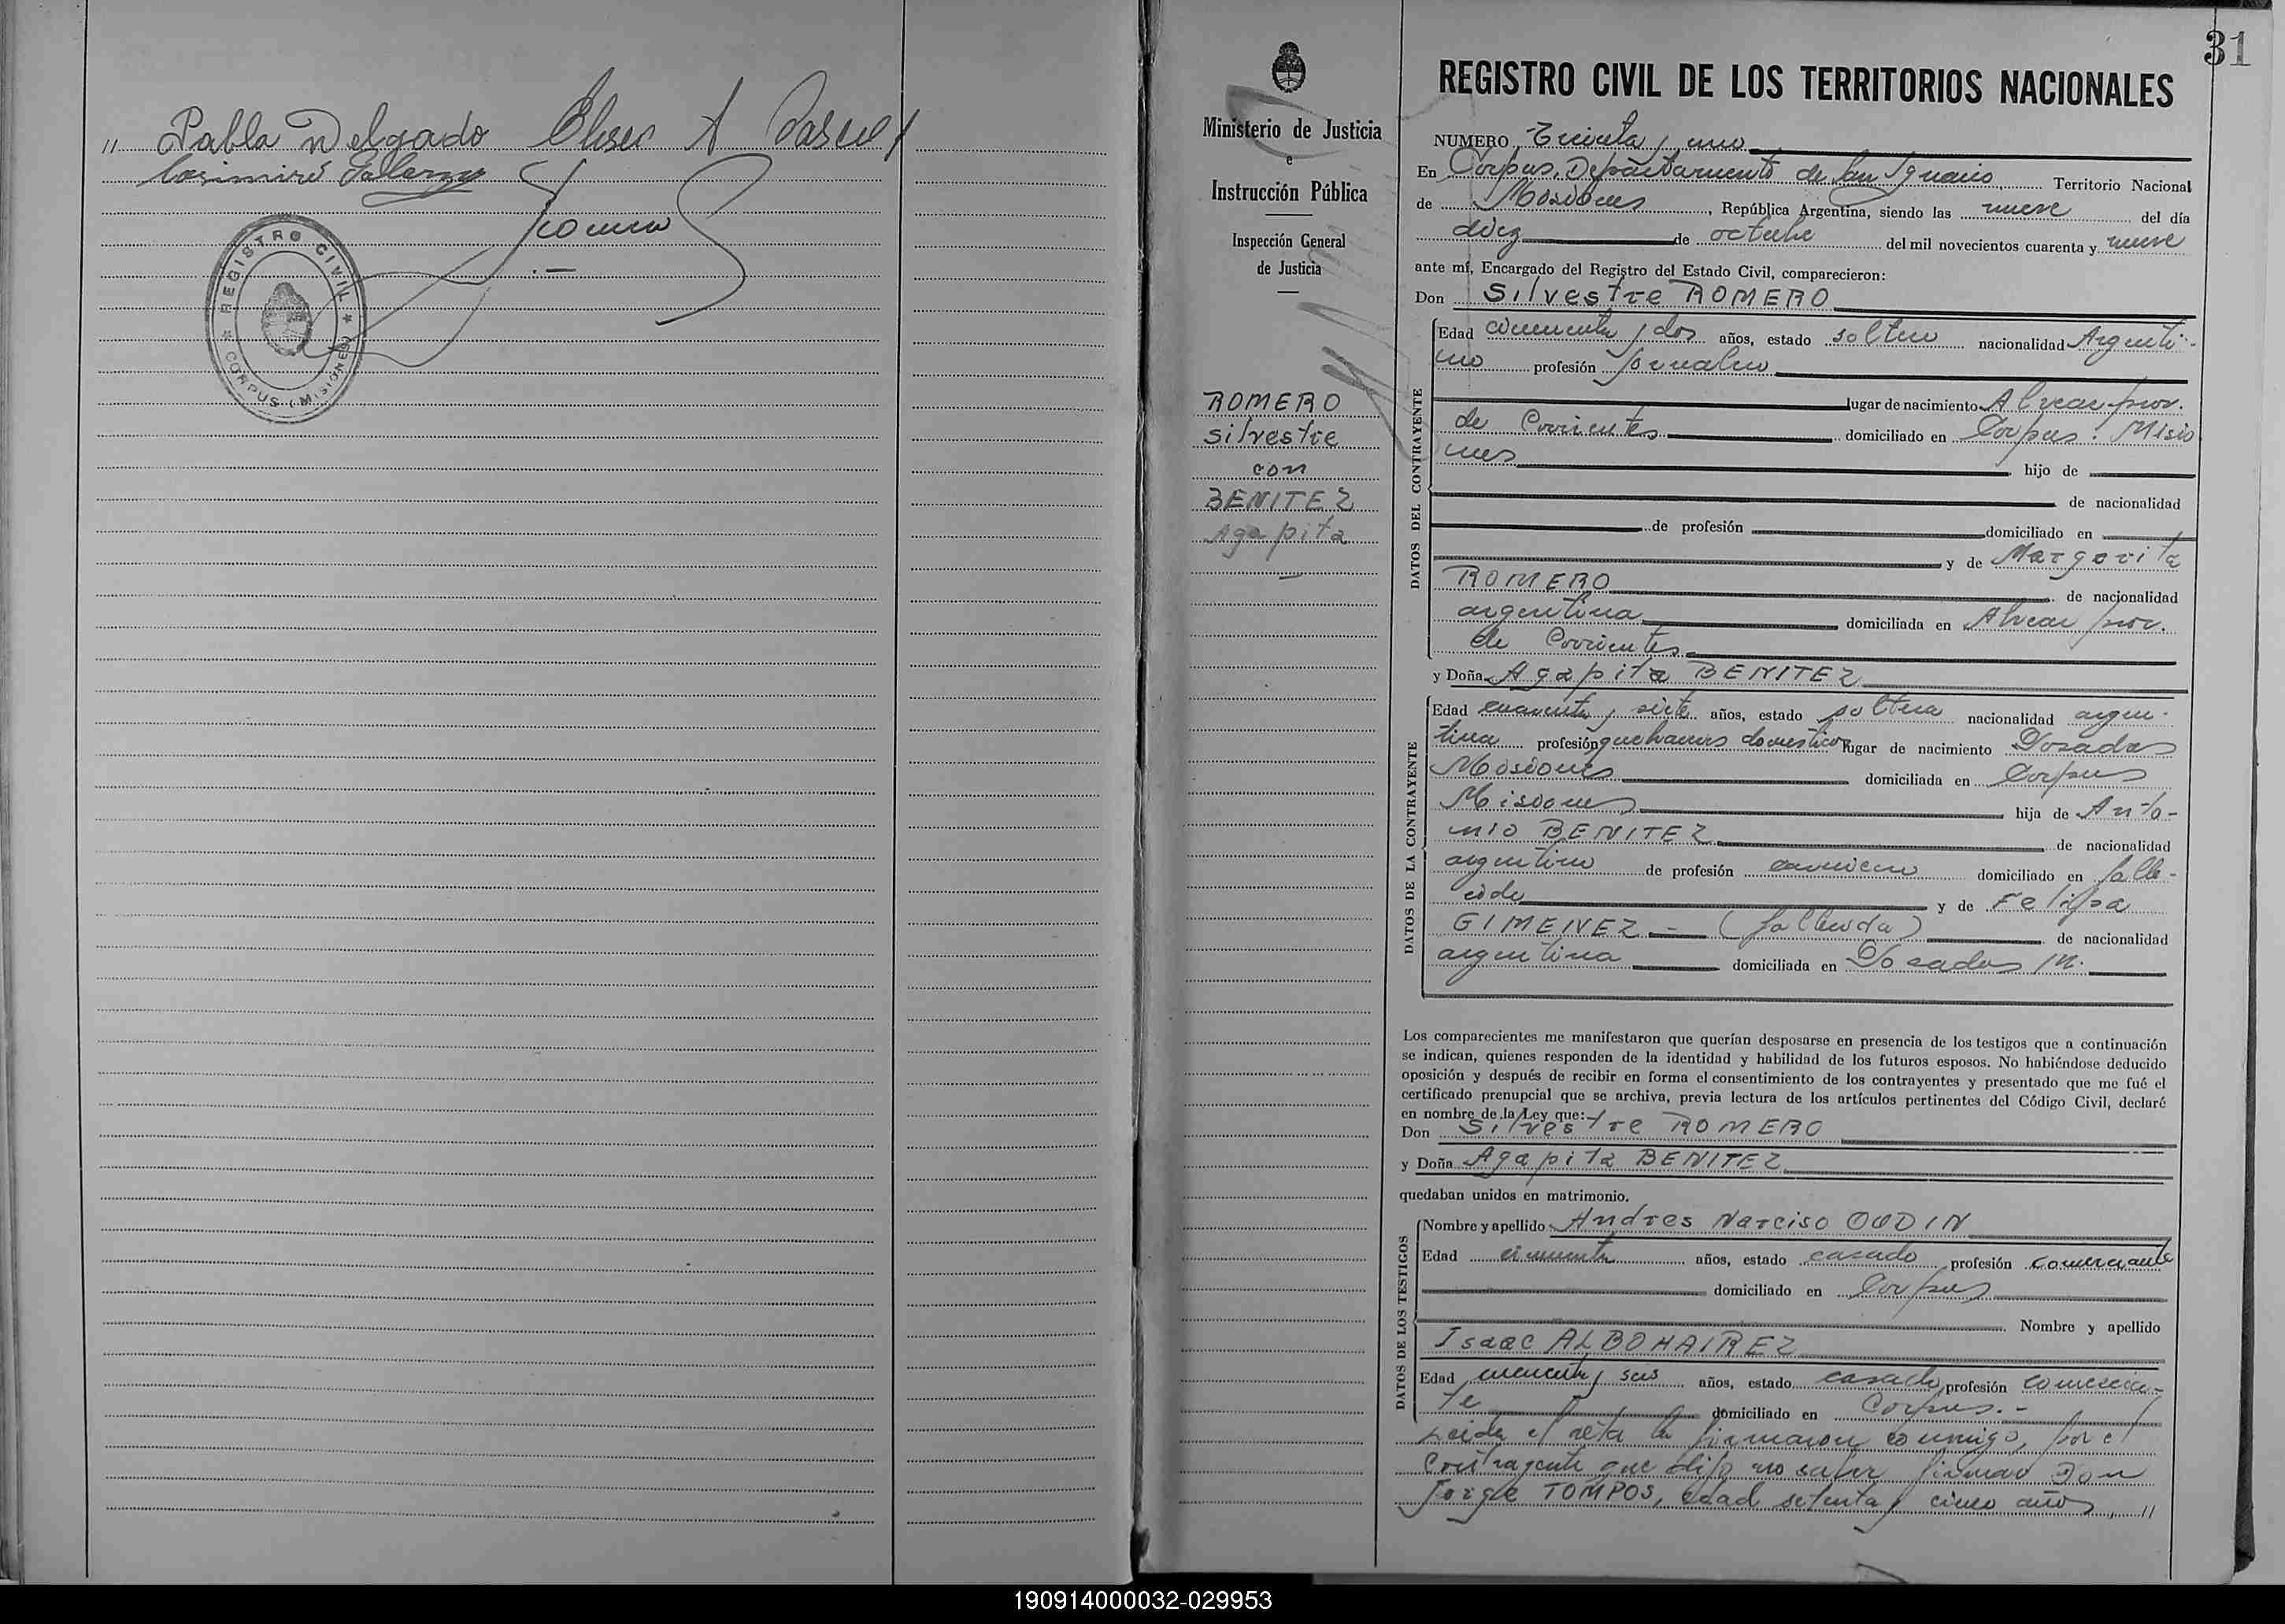 " Pabla Delgado Eliseo A
Casimiro
REGISTRO CIVIL
CORPUS (MISIONES)
31
Ministerio de Justicia
e
Instrucción Pública
Inspección General
de Justicia
ROMERO
Silvestre
con
BENITEZ
Agapita
REGISTRO CIVIL DE LOS TERRITORIOS NACIONALES
NUMERO Treinta y uno
En Corpus, Departamento de San Ignacio, Territorio Nacional
de Misiones, República Argentina, siendo las nueve del día
diez de octubre del mil novecientos cuarenta y nueve
ante mí, Encargado del Registro del Estado Civil, comparecieron:
Don Silvestre ROMERO
DATOS DEL CONTRAYENTE
Edad cincuenta y dos años, estado soltero nacionalidad Argenti-
no profesión Jornalero
lugar de nacimiento Alvear prov.
de Corrientes domiciliado en Corpus. Misio
nes hijo de
de nacionalidad
de profesión domiciliado en
y de Margarita
ROMERO de nacionalidad
argentina domiciliada en Alvear prov.
de Corrientes
y Doña Agapita BENITEZ
DATOS DE LA CONTRAYENTE
Edad cuarenta y siete años, estado soltera nacionalidad argen-
tina profesión quehaceres domesticos lugar de nacimiento Posadas
Misiones domiciliada en Corpus
Misiones hija de Anto-
nio BENITEZ de nacionalidad
argentino de profesión carnicero domiciliado en falle-
cido y de Felipa
GIMENEZ - (fallecida) de nacionalidad
argentina domiciliada en Posadas M.
Los comparecientes me manifestaron que querían desposarse en presencia de los testigos que a continuación
se indican, quienes responden de la identidad y habilidad de los futuros esposos. No habiéndose deducido
oposición y después de recibir en forma el consentimiento de los contrayentes y presentado que me fué el
certificado prenupcial que se archiva, previa lectura de los artículos pertinentes del Código Civil, declaré
en nombre de la Ley que:
Don Silvestre ROMERO
y Doña Agapita BENITEZ
quedaban unidos en matrimonio.
DATOS DE LOS TESTIGOS
Nombre y apellido Andres Narciso OUDIN
Edad cincuenta años, estado casado profesión comerciante
domiciliado en Corpus
Nombre y apellido
Isaac ALBOHAIREZ
Edad cuarenta y seis años, estado casado, profesión comercian-
te domiciliado en Corpus.-
Leida el acta la firmaron conmigo, por el
Contrayente que dijo no saber firmar Don
Jorge TOMPOS, edad setenta y cinco años, //
190914000032-029953